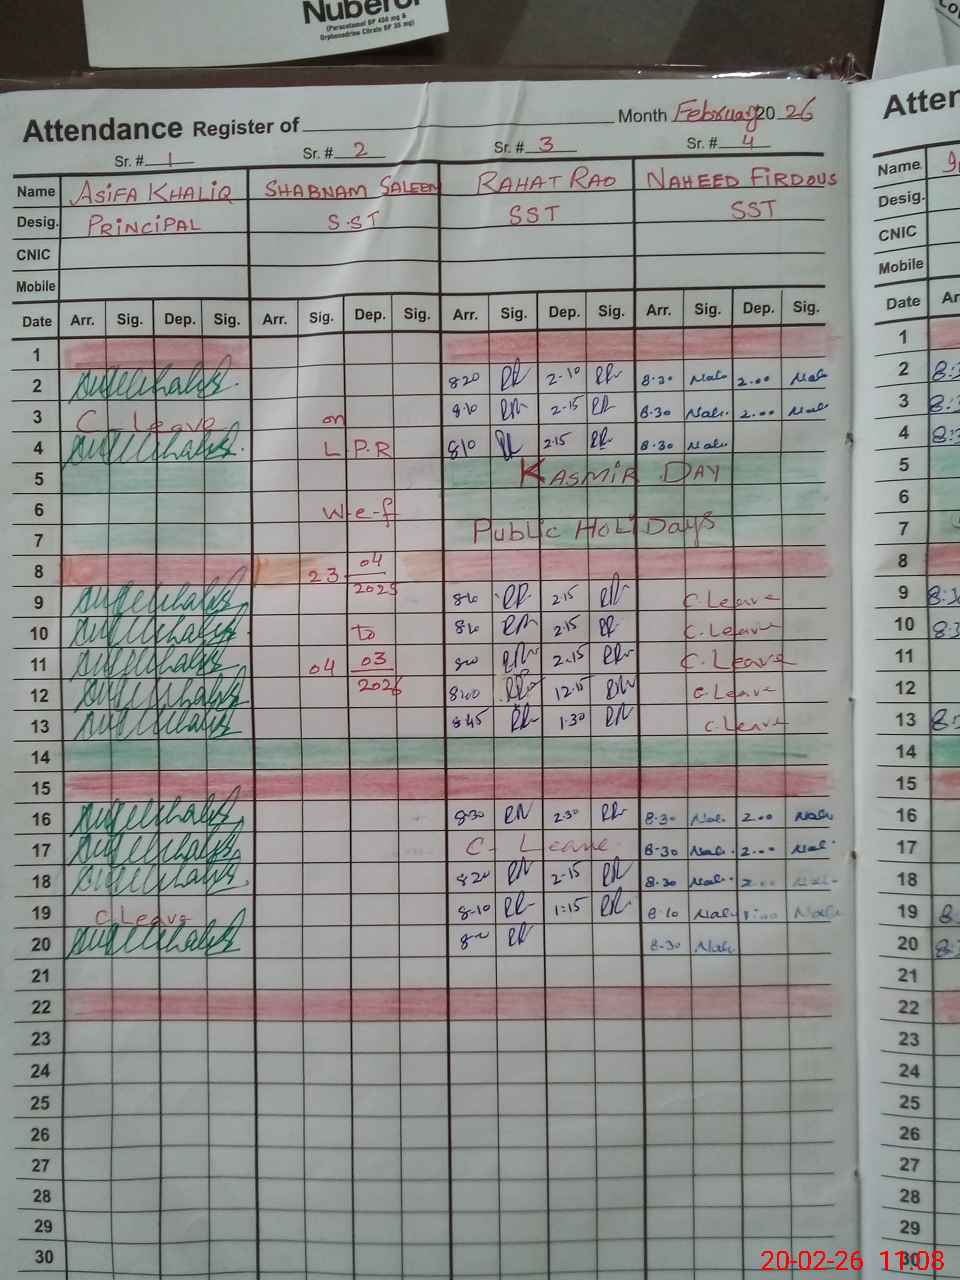 Nuberol
(Paracetamol BP 450 mg &
Orphenadrine Citrate BP 35 mg)
Attendance Register of Month February 20 26
Sr. # 1 Sr. # 2 Sr. # 3 Sr. # 4
Name ASIFA KHALIQ SHABNAM SALEEM RAHAT RAO NAHEED FIRDOUS
Desig. PRINCIPAL S.ST SST SST
CNIC
Mobile
Date Arr. Sig. Dep. Sig. Arr. Sig. Dep. Sig. Arr. Sig. Dep. Sig. Arr. Sig. Dep. Sig.
1
2 8:20 RR 2-10 RR 8.30 Nah 2.00 Nah
3 C-Leave on 8:10 RR 2-15 RR 8.30 Nah. 2.00 Nah
4 L P.R 8:10 RR 2:15 RR 8.30 Nah
5 KASMIR DAY
6 w-e-f
7 Public HoliDays
8 23 04 2025
9 2:15 C.Leave
10 to 2:15 C.Leave
11 04 03 2:15 C.Leave
12 2026 8:00 12:15 C.Leave
13 8:45 1:30 C.Leave
14
15
16 8:30 RR 2:30 RR 8.30 Nah. 2.00 Nah.
17 C- Leave 8.30 Nah. 2.00 Nah.
18 8:20 RR 2-15 RR 8.30 Nah. 2.00 Nah.
19 C.Leave 8-10 RR 1:15 RR 8.10 Nah Nah
20 RR 8.30 Nah
21
22
23
24
25
26
27
28
29
30
Atten
Name
Desig.
CNIC
Mobile
Date Ar
1
2
3
4
5
6
7
8
9
10
11
12
13
14
15
16
17
18
19
20
21
22
23
24
25
26
27
28
29
30
20-02-26 11:08